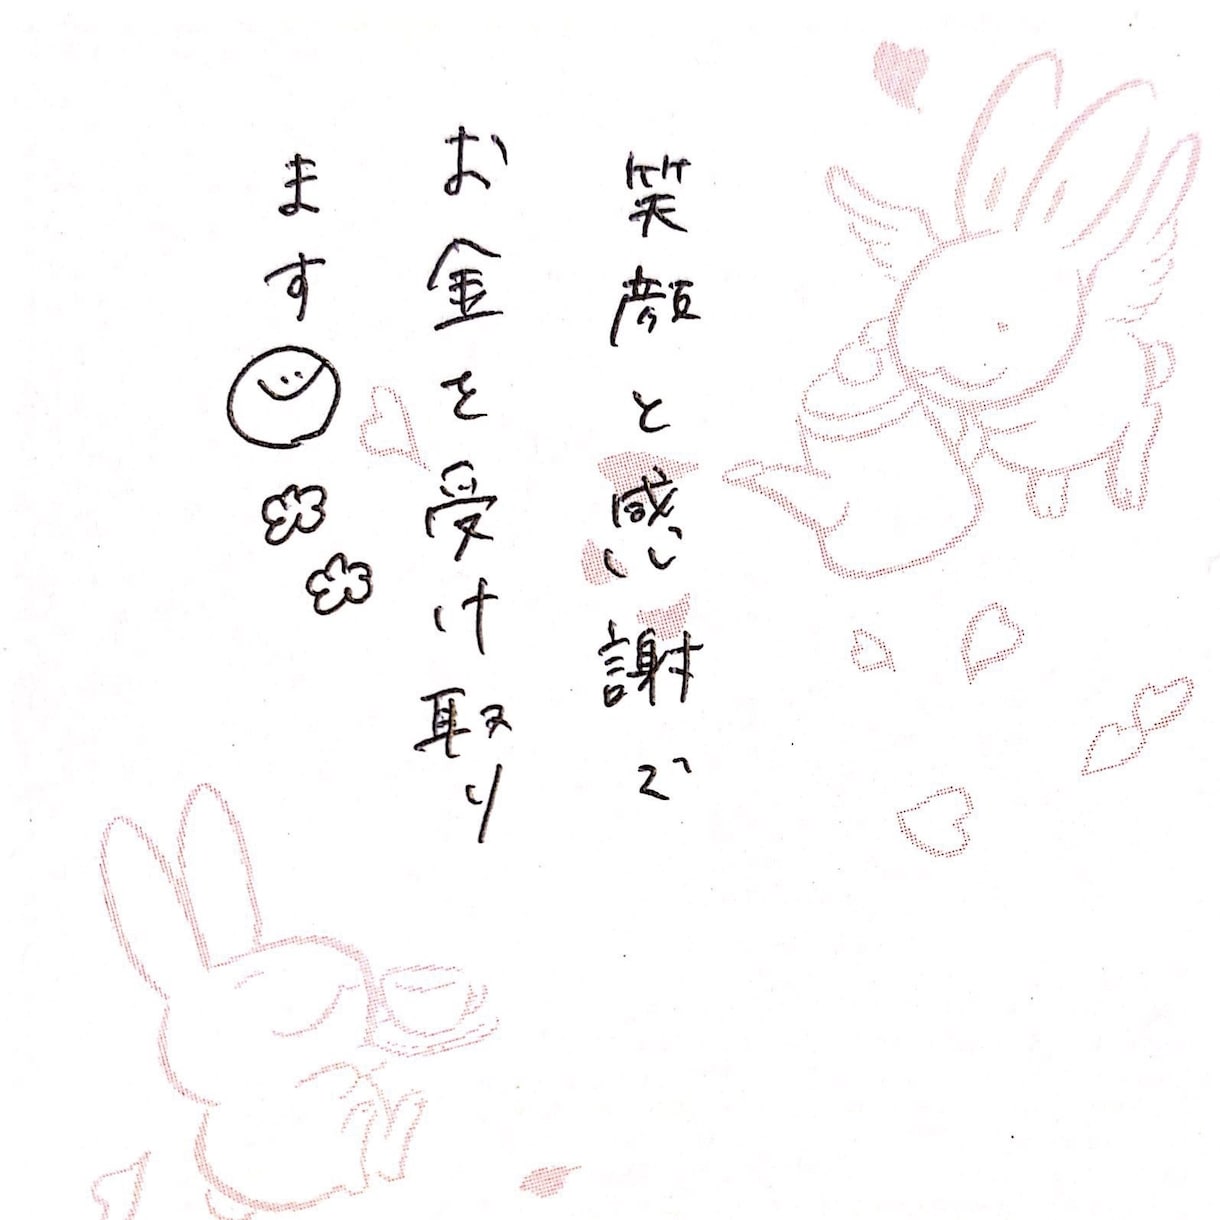 笑顔と感謝で
お金を受け取り
ます